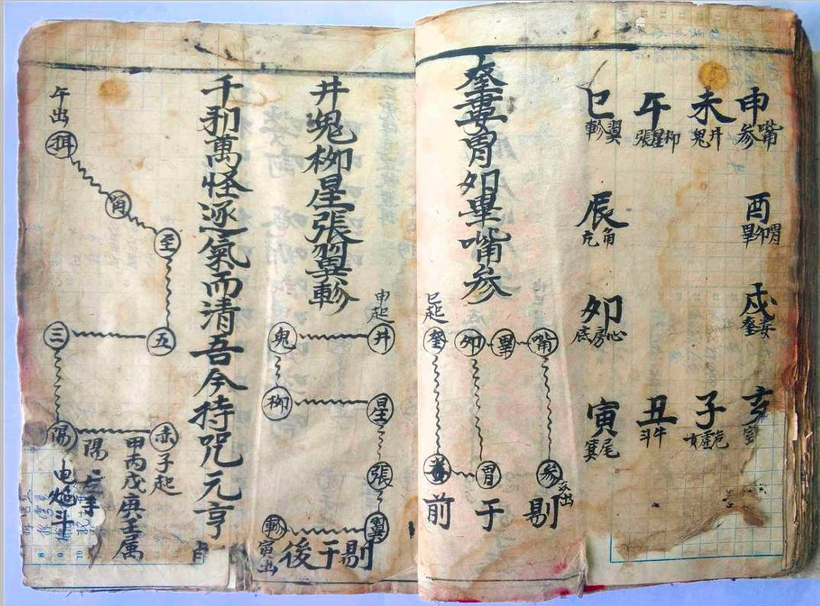 申
嘴参
未
井鬼
午
柳星張
巳
翼軫
酉
胃卯畢
辰
角亢
戌
婁奎
卯
心房底
亥
室
子
危虛女
丑
牛斗
寅
尾箕
奎婁胃卯畢嘴参
嘴
畢
卯
奎
巳起
参
亥出
胃
婁
前于剔
井鬼柳星張翼軫
申起
井
鬼
柳
星
張
翼
軫
寅出
後于剔
千和萬怪逐氣而清吾今持咒元亨
午出
角
壬
五
三
陽
赤
子起
甲丙戊庚壬属
陽